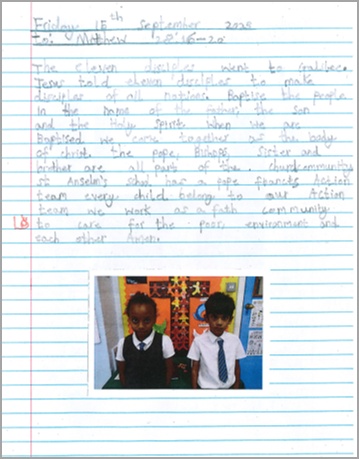 Friday 15th September 2025
to: Matthew 28:16-20
The Eleven disciples went to Galilee.
Jesus told eleven disciples to make
disciples of all nations. Baptise the people
In the name of the father, the son
and the Holy Spirit. When we are
Baptised we come together as the body
of christ. the pope, Bishops, Sister and
brother are all part of the church community
St Anselm's school has a pope francis Action
team every child belong to our Action
team we work as a faith community
to care for the poor, environment and
each other Amen.